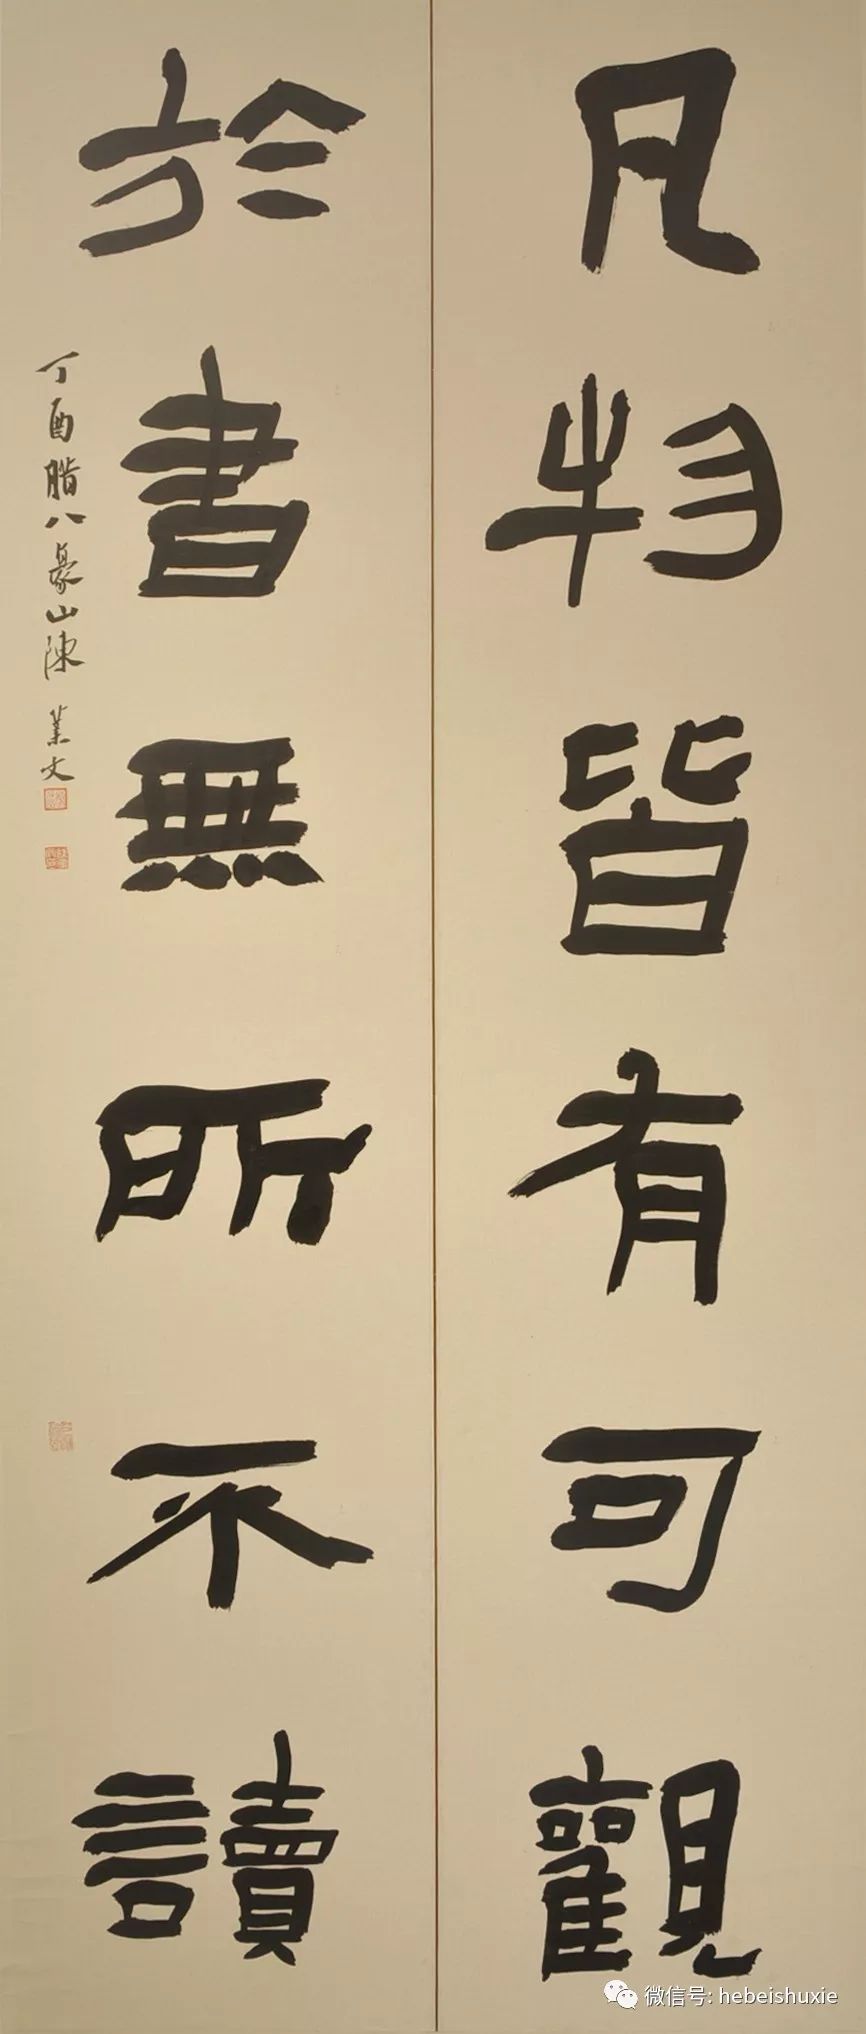 凡物皆有可觀
於書無所不讀
丁酉腊八彖山陳業文
微信号: hebeishuxie